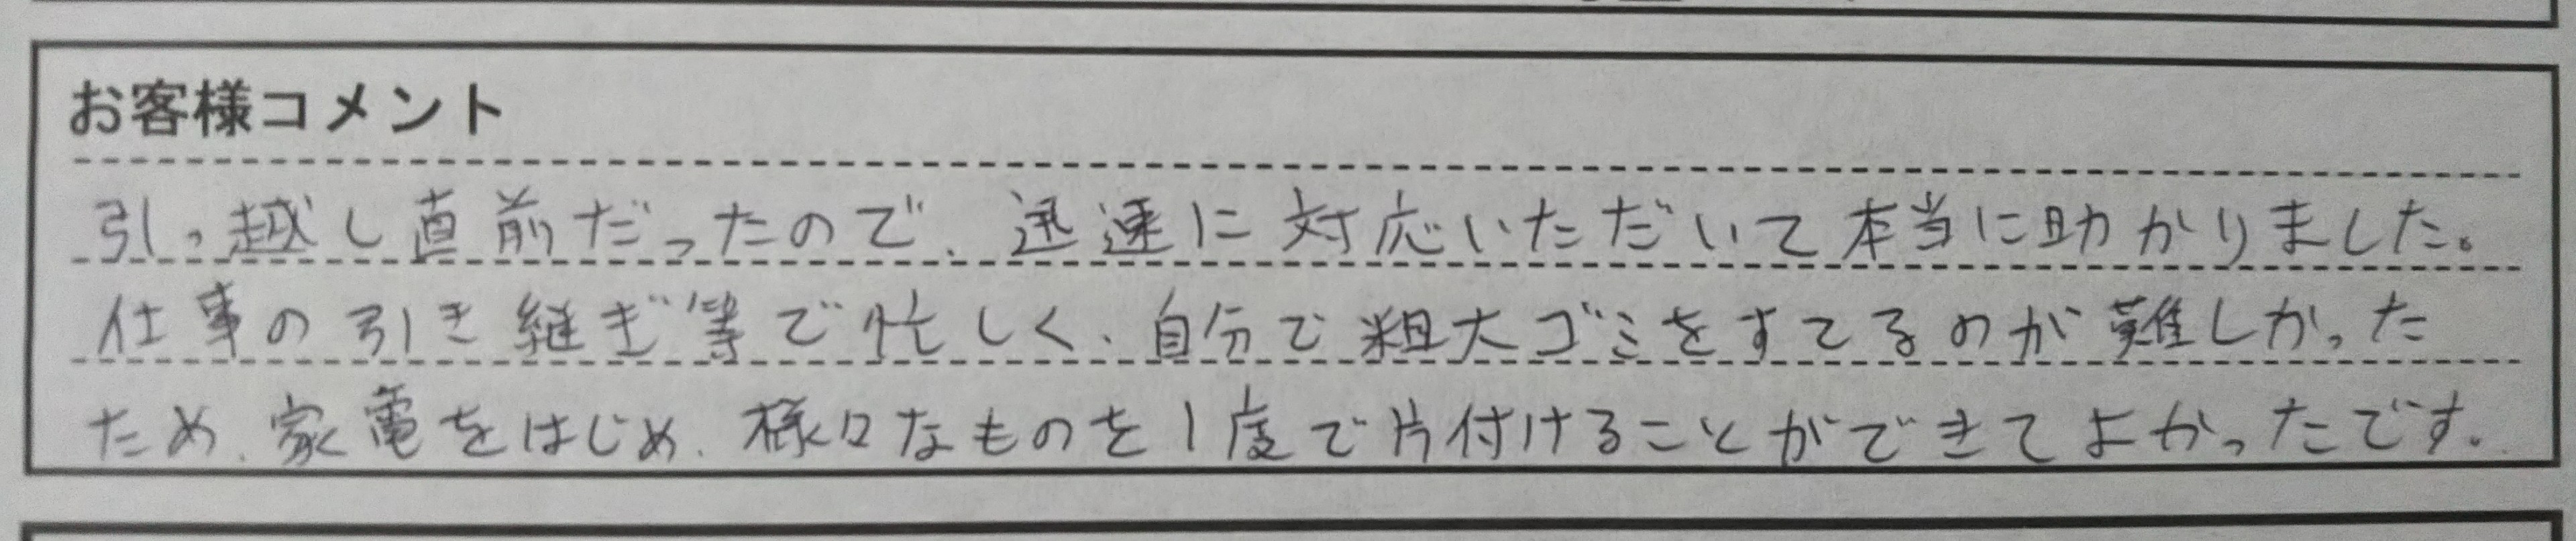 お客様コメント
引っ越し直前だったので、迅速に対応いただいて本当に助かりました。
仕事の引き継ぎ等で忙しく、自分で粗大ゴミをすてるのが難しかった
ため、家電をはじめ、様々なものを1度で片付けることができてよかったです。